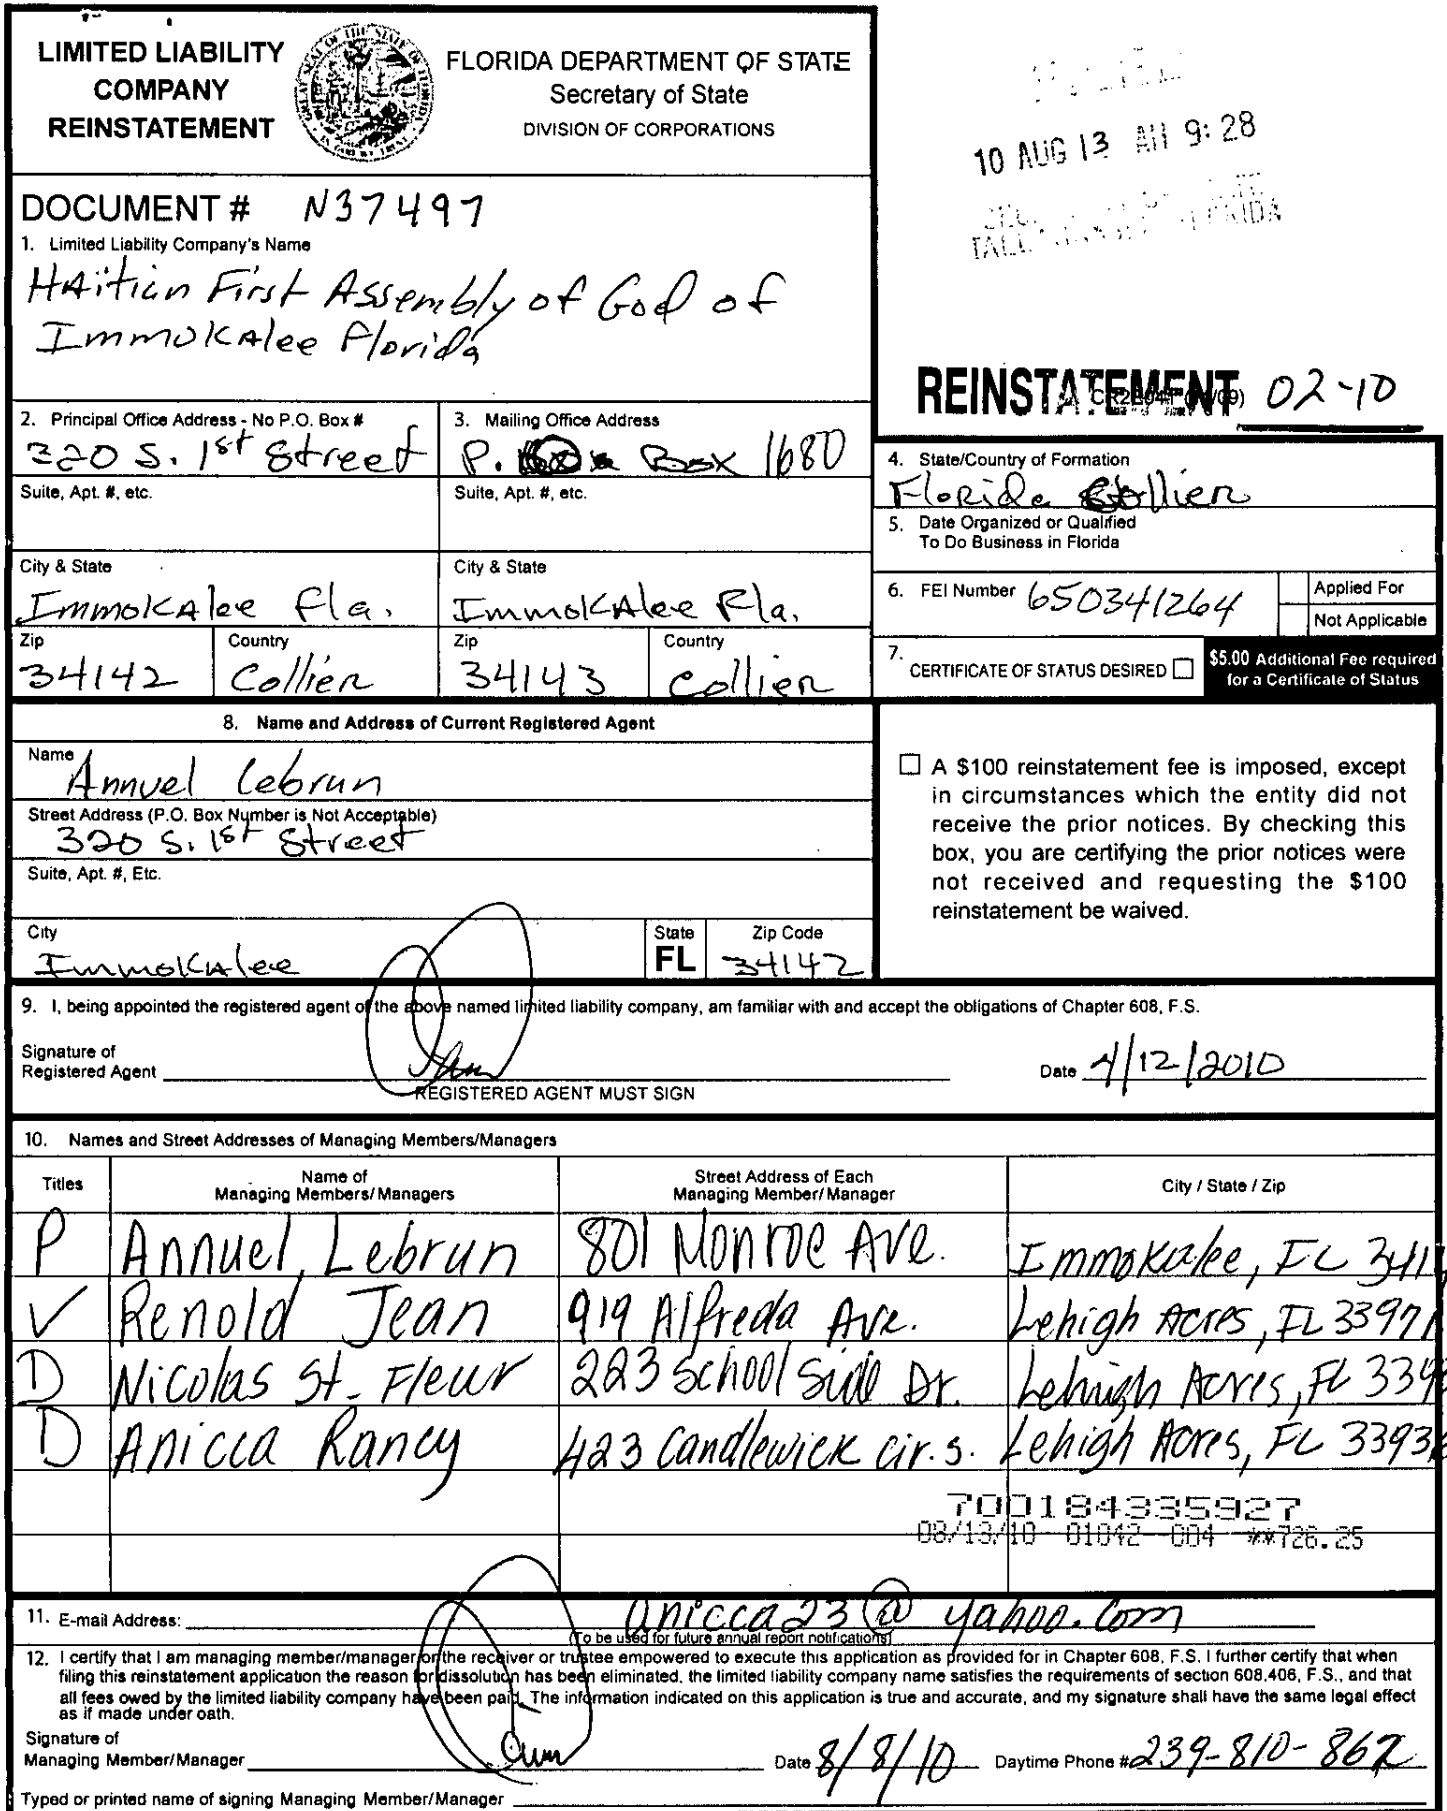 LIMITED LIABILITY
COMPANY
REINSTATEMENT
FLORIDA DEPARTMENT OF STATE
Secretary of State
DIVISION OF CORPORATIONS
10 AUG 13 AM 9:28
DOCUMENT # N37497
1. Limited Liability Company's Name
HAitian First Assembly of God of
ImmoKAlee Florida
REINSTATEMENT 02-10
2. Principal Office Address - No P.O. Box #
320 S. 1st Street
3. Mailing Office Address
P. Box 1680
Suite, Apt. #, etc.
Suite, Apt. #, etc.
City & State
ImmoKAlee Fla.
City & State
ImmoKAlee Fla.
Zip
34142
Country
Collier
Zip
34143
Country
Collier
4. State/Country of Formation
Florida Collier
5. Date Organized or Qualified
To Do Business in Florida
6. FEI Number 650341264
Applied For
Not Applicable
7. CERTIFICATE OF STATUS DESIRED
$5.00 Additional Fee required
for a Certificate of Status
8. Name and Address of Current Registered Agent
Name
Annuel Lebrun
Street Address (P.O. Box Number is Not Acceptable)
320 S. 1st Street
Suite, Apt. #, Etc.
City
ImmoKAlee
State
FL
Zip Code
34142
A $100 reinstatement fee is imposed, except
in circumstances which the entity did not
receive the prior notices. By checking this
box, you are certifying the prior notices were
not received and requesting the $100
reinstatement be waived.
9. I, being appointed the registered agent of the above named limited liability company, am familiar with and accept the obligations of Chapter 608, F.S.
Signature of
Registered Agent
REGISTERED AGENT MUST SIGN
Date /12/2010
10. Names and Street Addresses of Managing Members/Managers
Titles
Name of
Managing Members/Managers
Street Address of Each
Managing Member/Manager
City / State / Zip
P Annuel Lebrun 801 Monroe Ave. Immokalee, FL
V Renold Jean 919 Alfreda Ave. Lehigh Acres, FL 33971
D Nicolas St-Fleur 223 School Side Dr. Lehigh Acres, FL
D Anicca Rancy 423 Candlewick cir. s. Lehigh Acres, FL
700184335927
08/13/10 01042 004 **726.25
11. E-mail Address: anicca23@yahoo.com
(To be used for future annual report notifications)
12. I certify that I am managing member/manager or the receiver or trustee empowered to execute this application as provided for in Chapter 608, F.S. I further certify that when
filing this reinstatement application the reason for dissolution has been eliminated, the limited liability company name satisfies the requirements of section 608.406, F.S., and that
all fees owed by the limited liability company have been paid. The information indicated on this application is true and accurate, and my signature shall have the same legal effect
as if made under oath.
Signature of
Managing Member/Manager
Date 8/8/10
Daytime Phone # 239-810-862
Typed or printed name of signing Managing Member/Manager